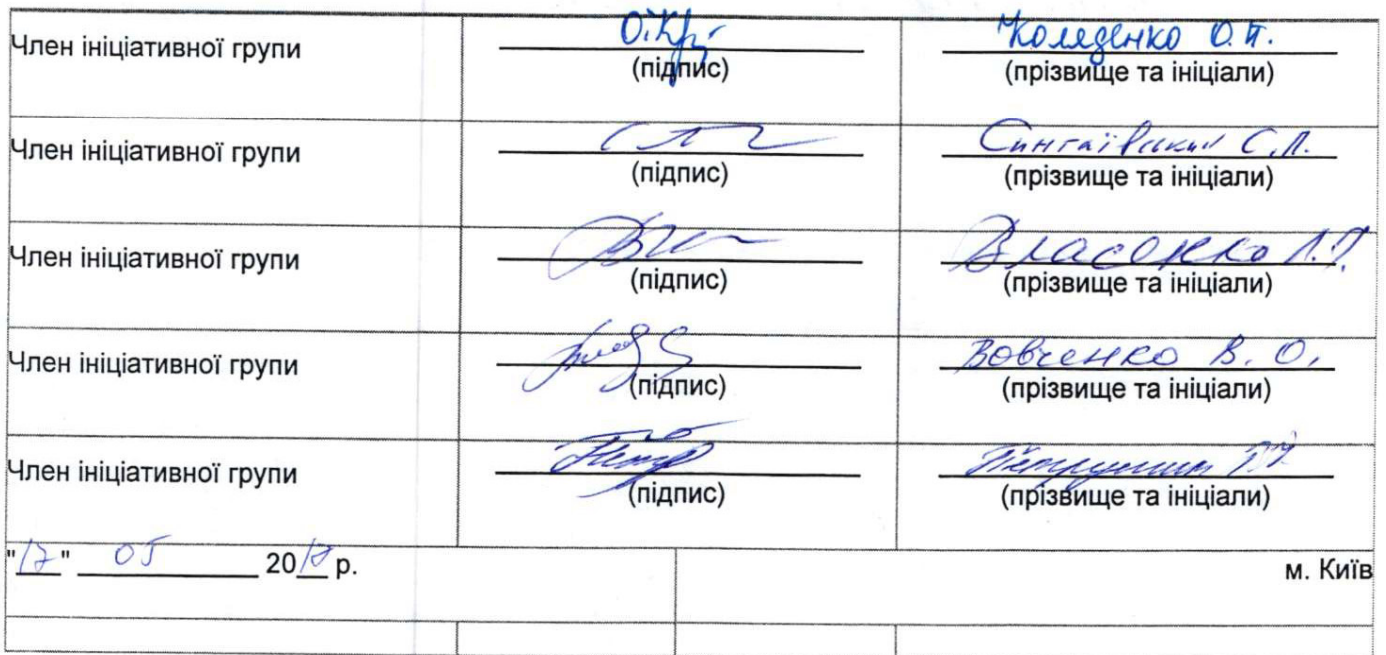 Член ініціативної групи
(підпис)
Коляденко О.П.
(прізвище та ініціали)
Член ініціативної групи
(підпис)
Сингаївський С.П.
(прізвище та ініціали)
Член ініціативної групи
(підпис)
Власенко Л.П.
(прізвище та ініціали)
Член ініціативної групи
(підпис)
Вовченко В. О.
(прізвище та ініціали)
Член ініціативної групи
(підпис)
(прізвище та ініціали)
"17" 05 20 р.
м. Київ